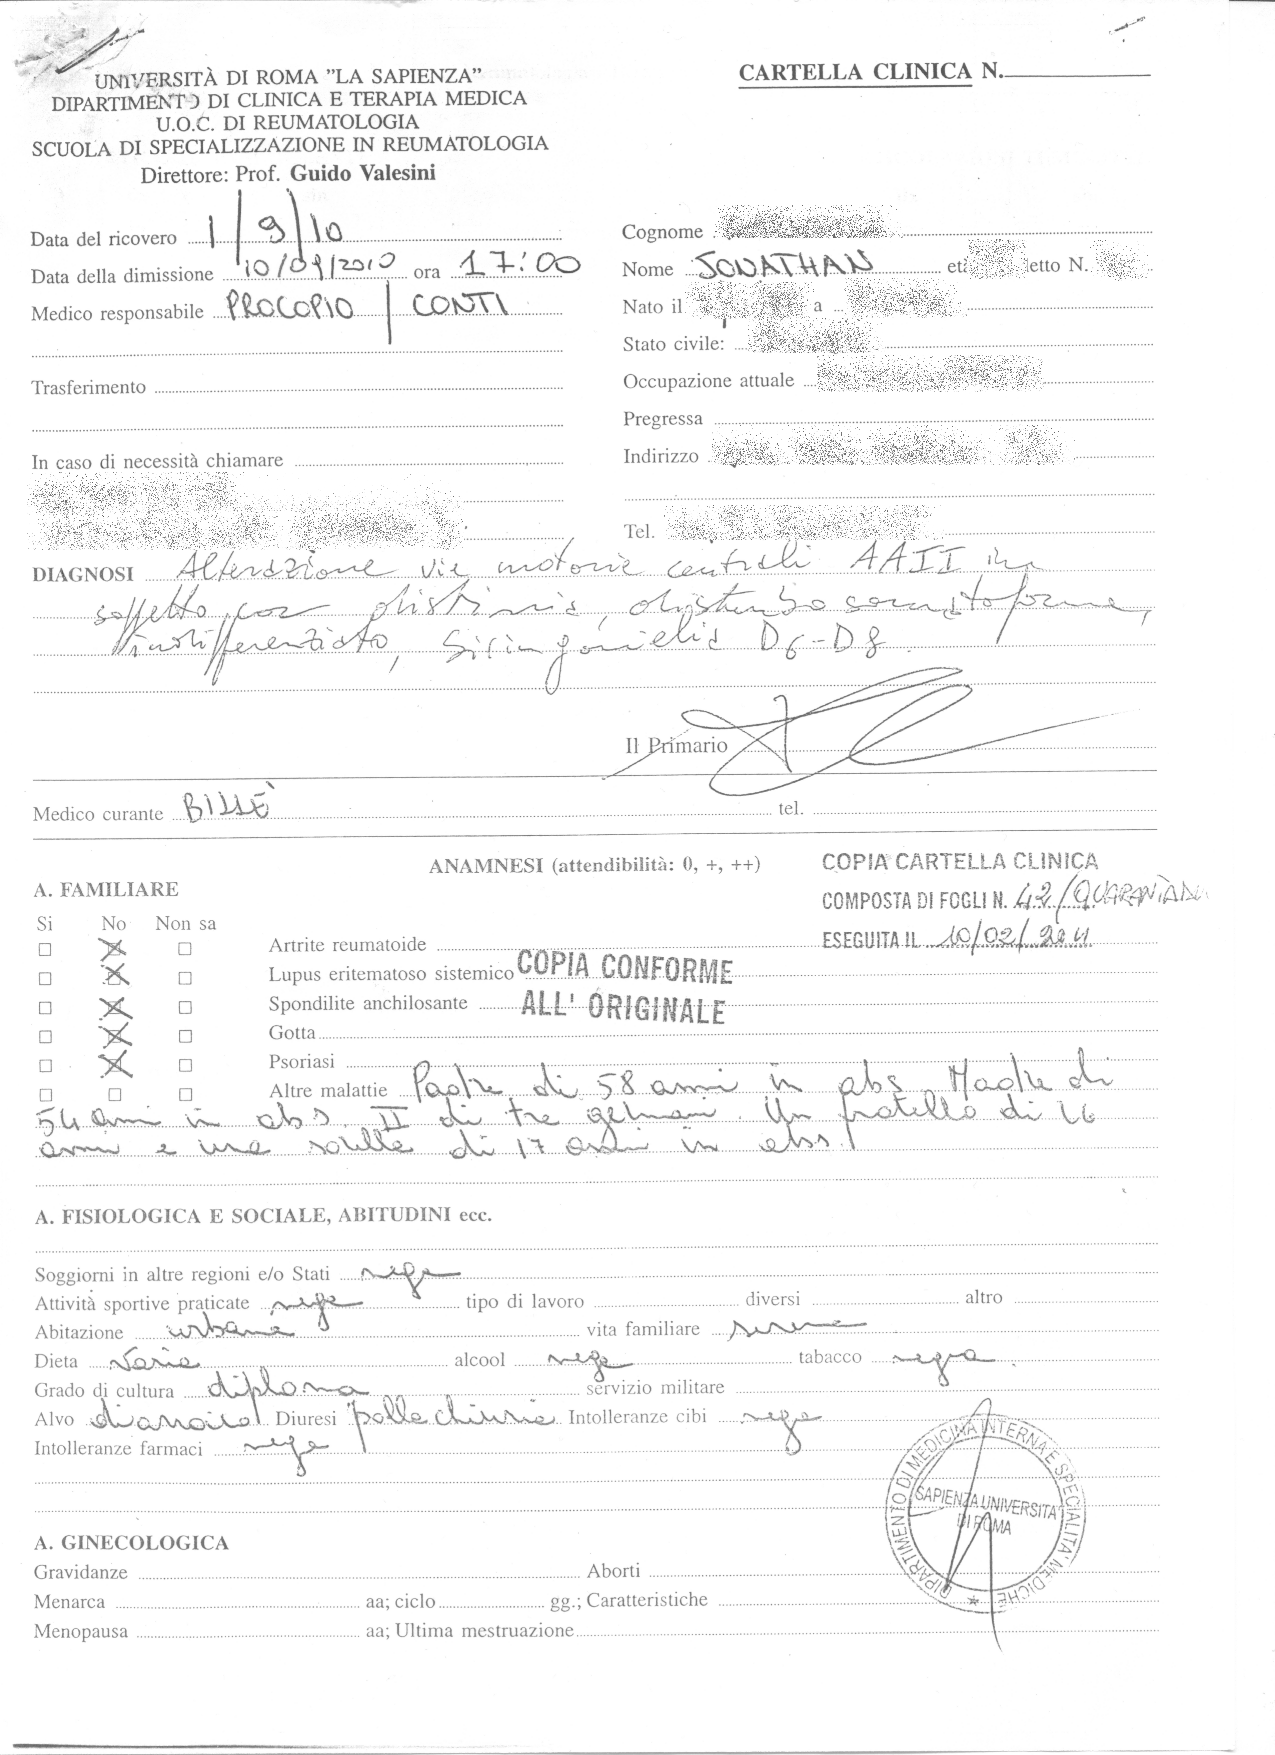 UNIVERSITÀ DI ROMA "LA SAPIENZA"
DIPARTIMENTO DI CLINICA E TERAPIA MEDICA
U.O.C. DI REUMATOLOGIA
SCUOLA DI SPECIALIZZAZIONE IN REUMATOLOGIA
Direttore: Prof. Guido Valesini
CARTELLA CLINICA N.
Data del ricovero 1/9/10
Data della dimissione 10/09/2010 ora 17:00
Medico responsabile PROCOPIO / CONTI
Trasferimento
In caso di necessità chiamare
Cognome
Nome JONATHAN età letto N.
Nato il a
Stato civile:
Occupazione attuale
Pregressa
Indirizzo
Tel.
DIAGNOSI Alterazione vie motorie centrali AAII in
soggetto con distimia, disturbo somatoforme,
indifferenziato, Siringomielia D6-D8
Il Primario
Medico curante BILLÈ tel.
ANAMNESI (attendibilità: 0, +, ++)
COPIA CARTELLA CLINICA
COMPOSTA DI FOGLI N. 42/
ESEGUITA IL 10/02/2011
A. FAMILIARE
Si No Non sa
Artrite reumatoide
Lupus eritematoso sistemico
Spondilite anchilosante
COPIA CONFORME
ALL' ORIGINALE
Gotta
Psoriasi
Altre malattie Padre di 58 anni in abs. Madre di
54 anni in abs. II di tre germani. Un fratello di 26
anni e una sorella di 17 anni in abs.
A. FISIOLOGICA E SOCIALE, ABITUDINI ecc.
Soggiorni in altre regioni e/o Stati nega
Attività sportive praticate nega tipo di lavoro diversi altro
Abitazione urbana vita familiare serena
Dieta Varia alcool nega tabacco nega
Grado di cultura diploma servizio militare
Alvo diarroico Diuresi pollachiuria Intolleranze cibi nega
Intolleranze farmaci nega
DIPARTIMENTO DI MEDICINA INTERNA E SPECIALITÀ MEDICHE
SAPIENZA UNIVERSITÀ
DI ROMA
A. GINECOLOGICA
Gravidanze Aborti
Menarca aa; ciclo gg.; Caratteristiche
Menopausa aa; Ultima mestruazione